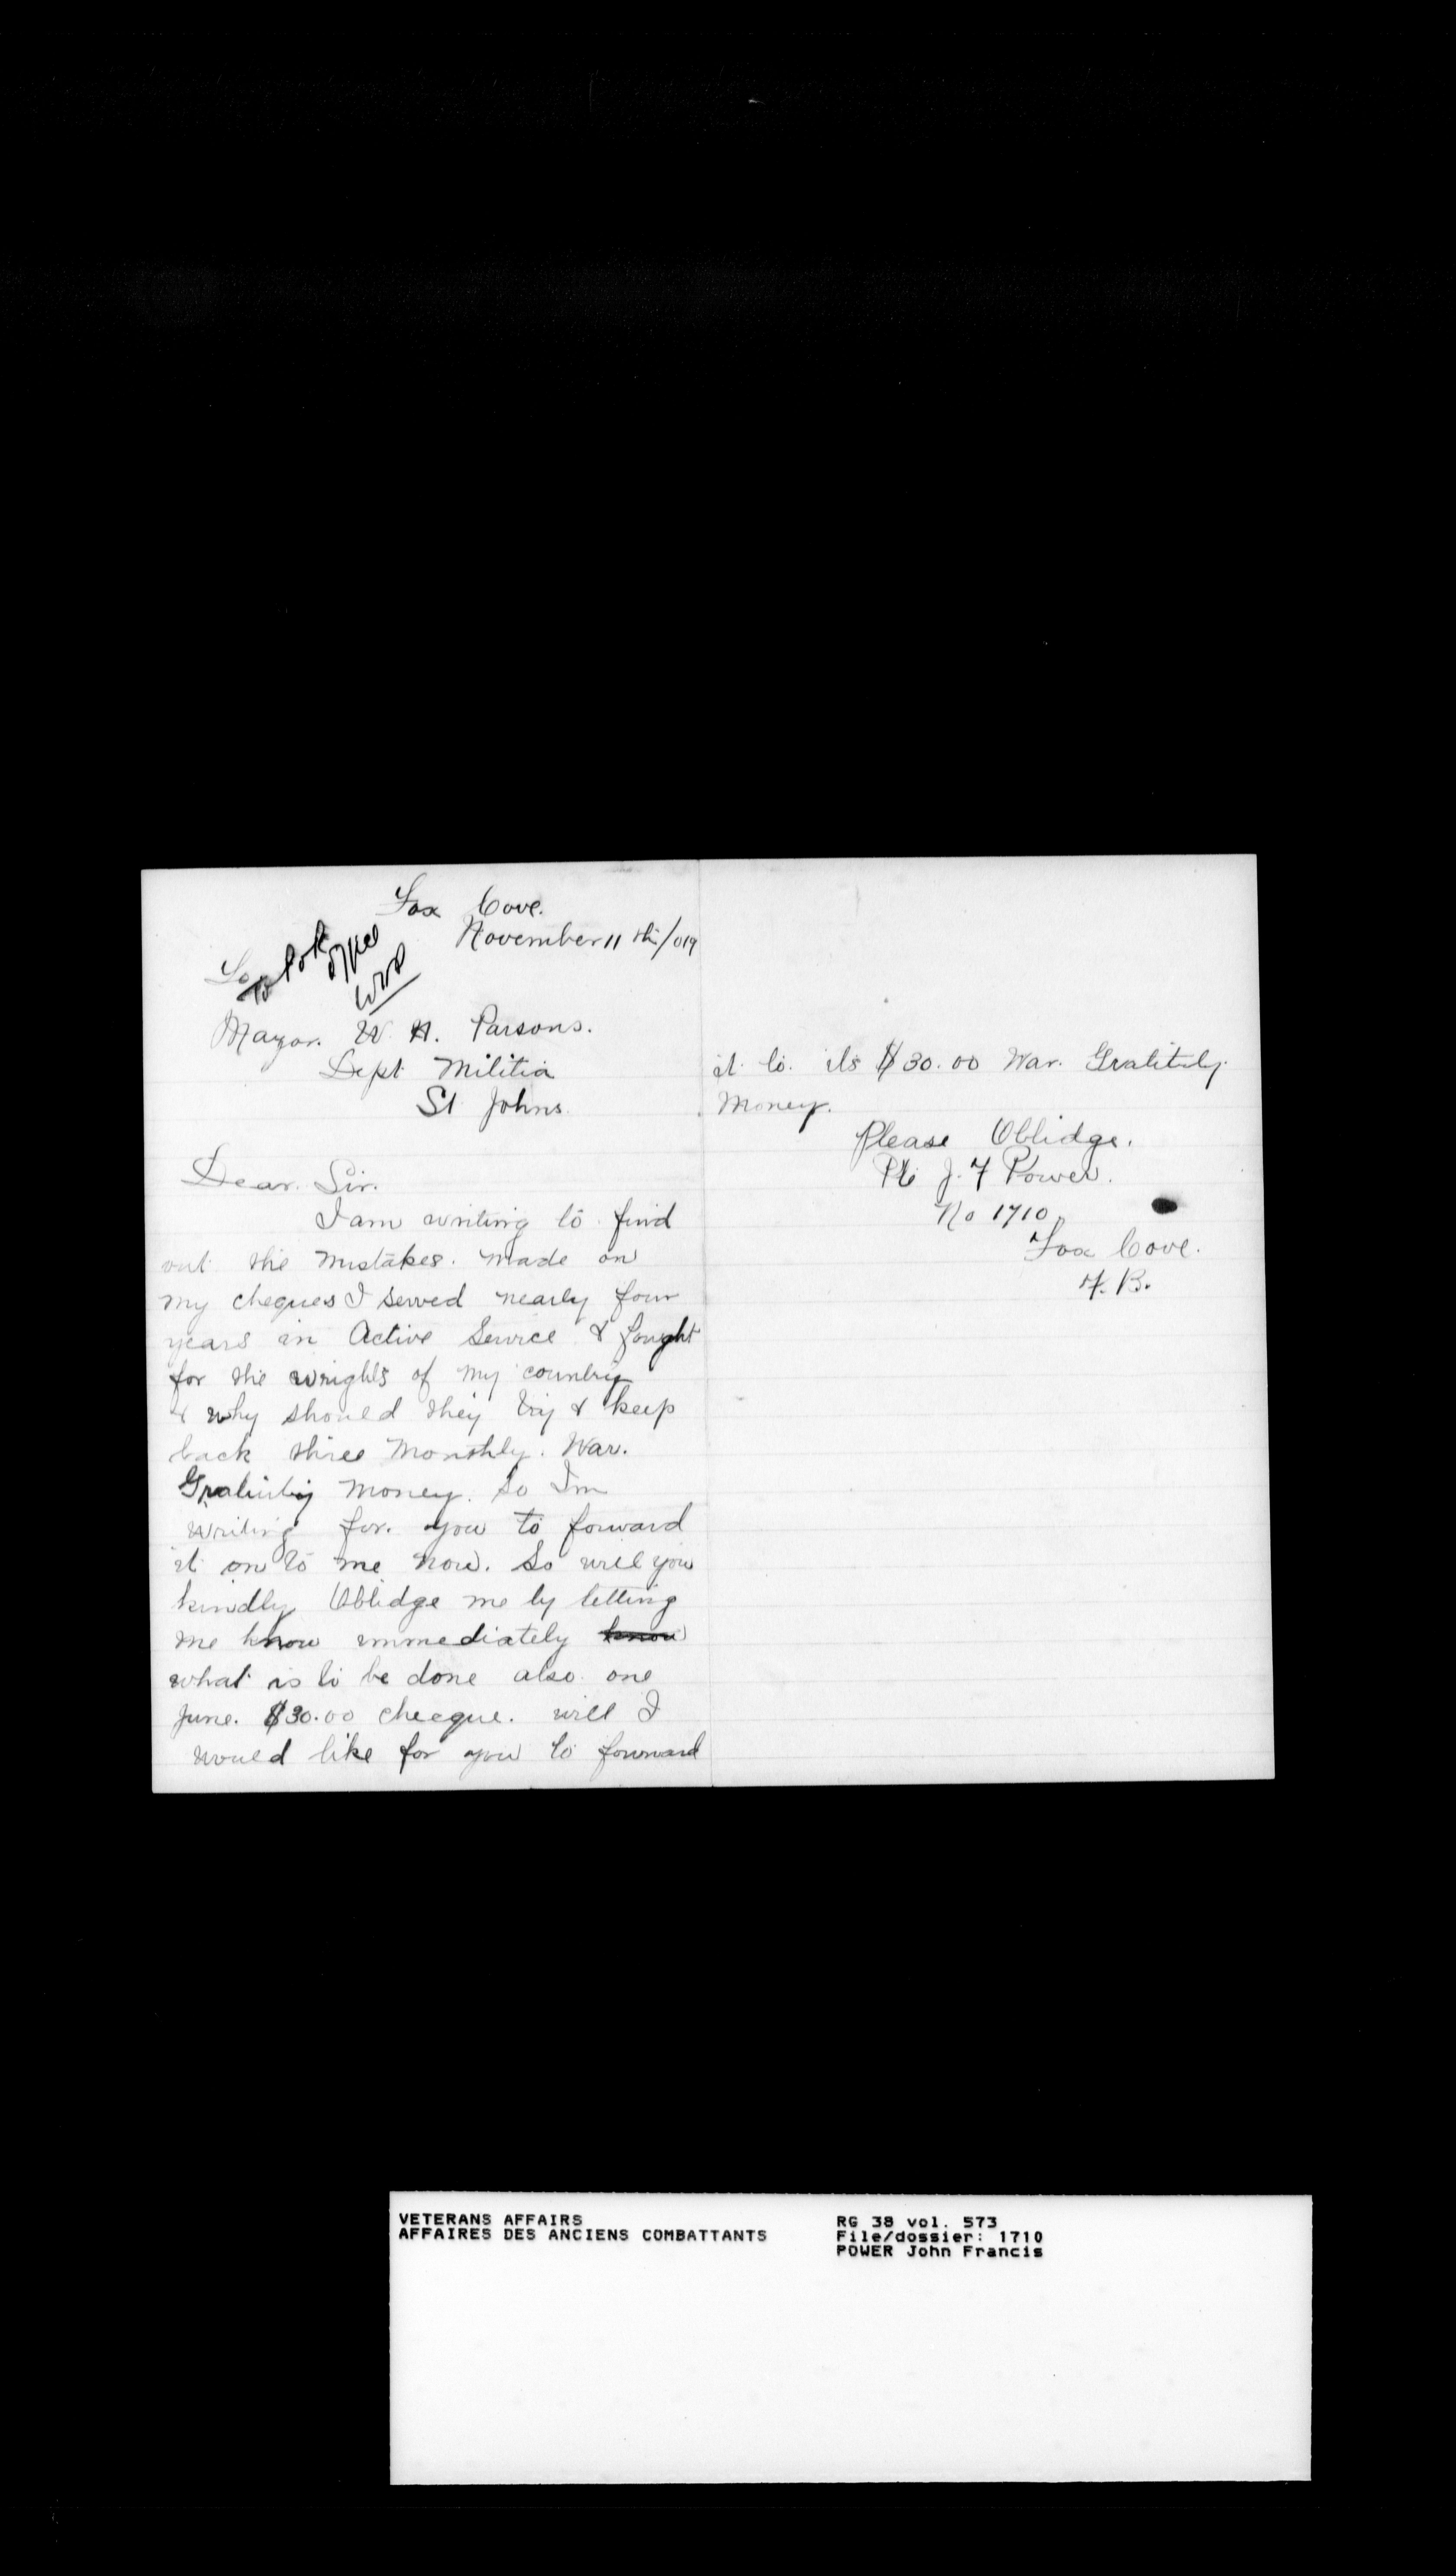 Fox Cove.
November 11 th/019
To
Mayor. W. H. Parsons.
Dept Militia
St Johns.
Dear. Sir.
I am writing to find
out the mistakes. made on
my cheques I served nearly four
years in Active Service & fought
for the wrights of my country
& why should they try & keep
back three Monthly. War.
Gratuity money. So Im
writing for. you to forward
it on to me now. So will you
kindly Oblidge me by letting
me know immediately know
what is to be done also one
June. $30.00 cheque. will I
would like for you to forward
it to. its $30.00 War. Gratituly.
Money.
Please Oblidge.
Pte J. F Power.
No 1710,
Fox Cove.
F. B.
VETERANS AFFAIRS
AFFAIRES DES ANCIENS COMBATTANTS
RG 38 vol. 573
File/dossier: 1710
POWER John Francis